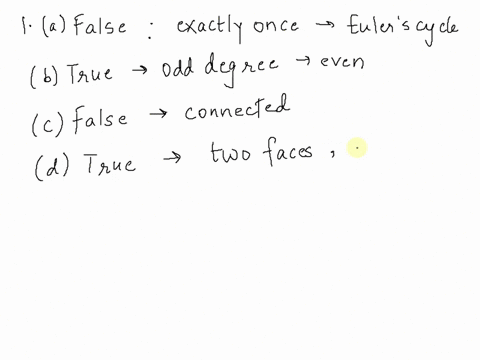 1. (a) False : exactly once → Euler's cycle
(b) True → odd degree → even
(c) False → connected
(d) True → two faces ,